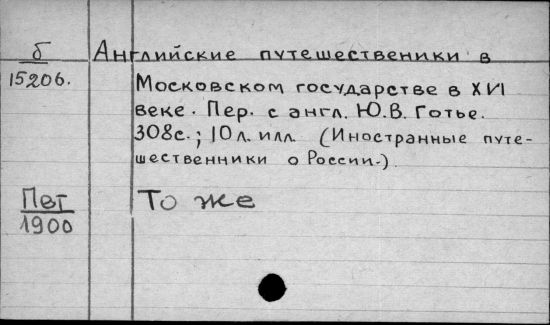 б Английские путешественики в
15206. Московском государстве в XVI
веке. Пер. с англ. Ю.В. Готье.
308с.; 10 л. илл. (Иностранные путе-
шественники о России.)
Пвт То же
1900